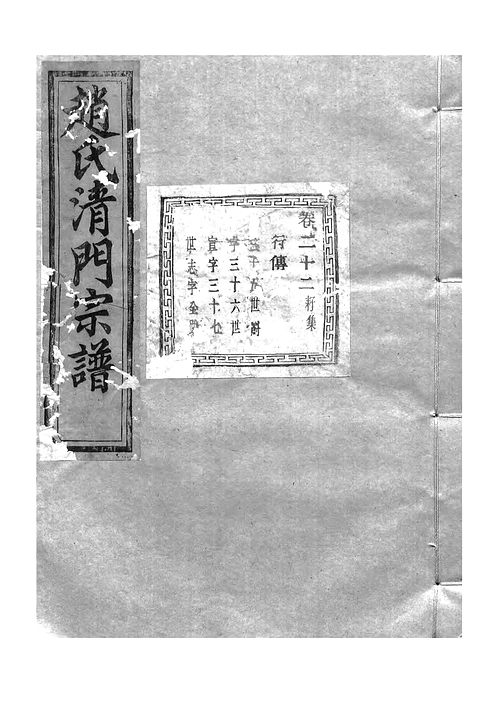 趙氏清門宗譜
卷二十二 籽集
行傳
世爵
字三十六世
宣字三十七
世志字全男